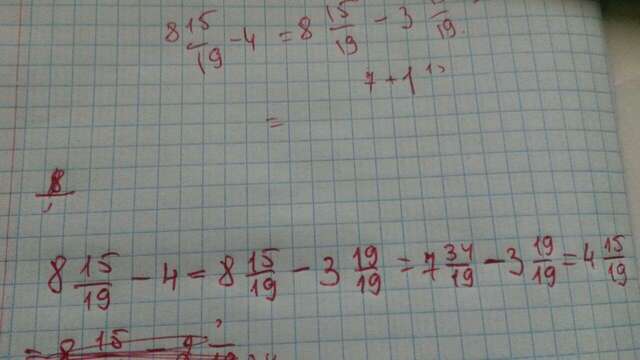 8 15/19 - 4 = 8 15/19 - 3 /19
7 + 1
=
8
8 15/19 - 4 = 8 15/19 - 3 19/19 = 7 34/19 - 3 19/19 = 4 15/19
= 8 15 -